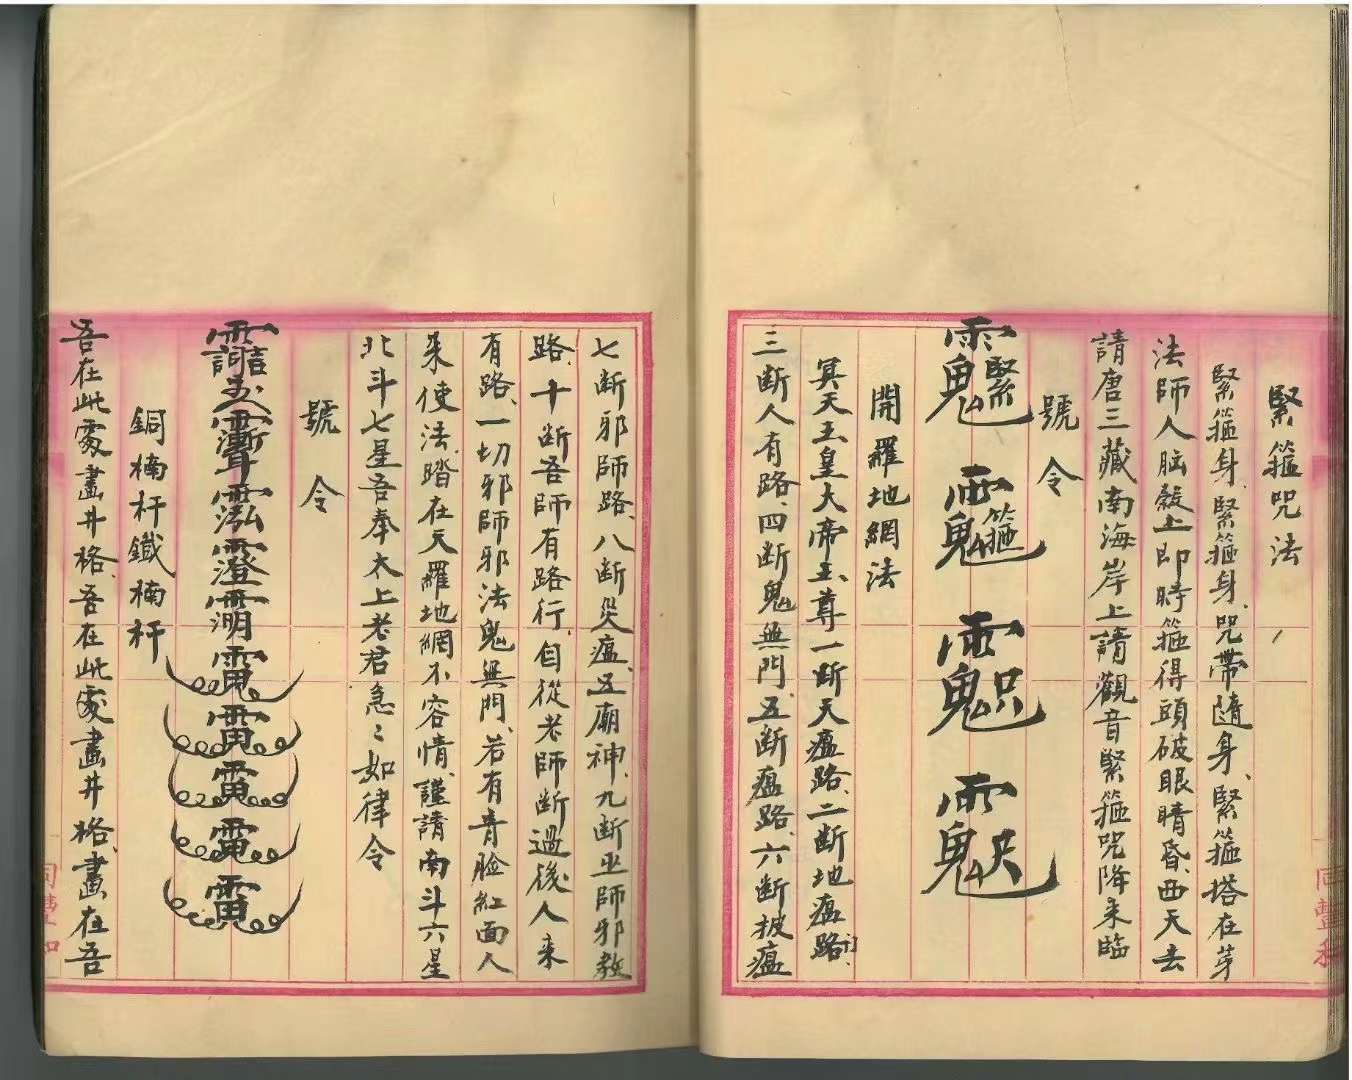 緊箍咒法
緊箍身、緊箍身、咒帶隨身、緊箍塔在芽
法師人脑殼上即時箍得頭破眼睛昏、西天去
請唐三藏南海岸上請觀音緊箍咒降来臨
號令
開羅地網法
冥天玉皇大帝玉尊一断天瘟路、二断地瘟路
三断人有路、四断鬼無門、五断瘟路、六断披瘟
七断邪師路、八断災瘟、五廟神、九断巫師邪教
路、十断吾師有路行、自從老師断過後人来
有路、一切邪師邪法鬼無門、若有青脸紅面人
来使法踏在天羅地網不容情、謹請南斗六星
北斗七星吾奉太上老君急〻如律令
號令
銅楠杆鐵楠杆
吾在此處畫井格、吾在此處畫井格、畫在吾